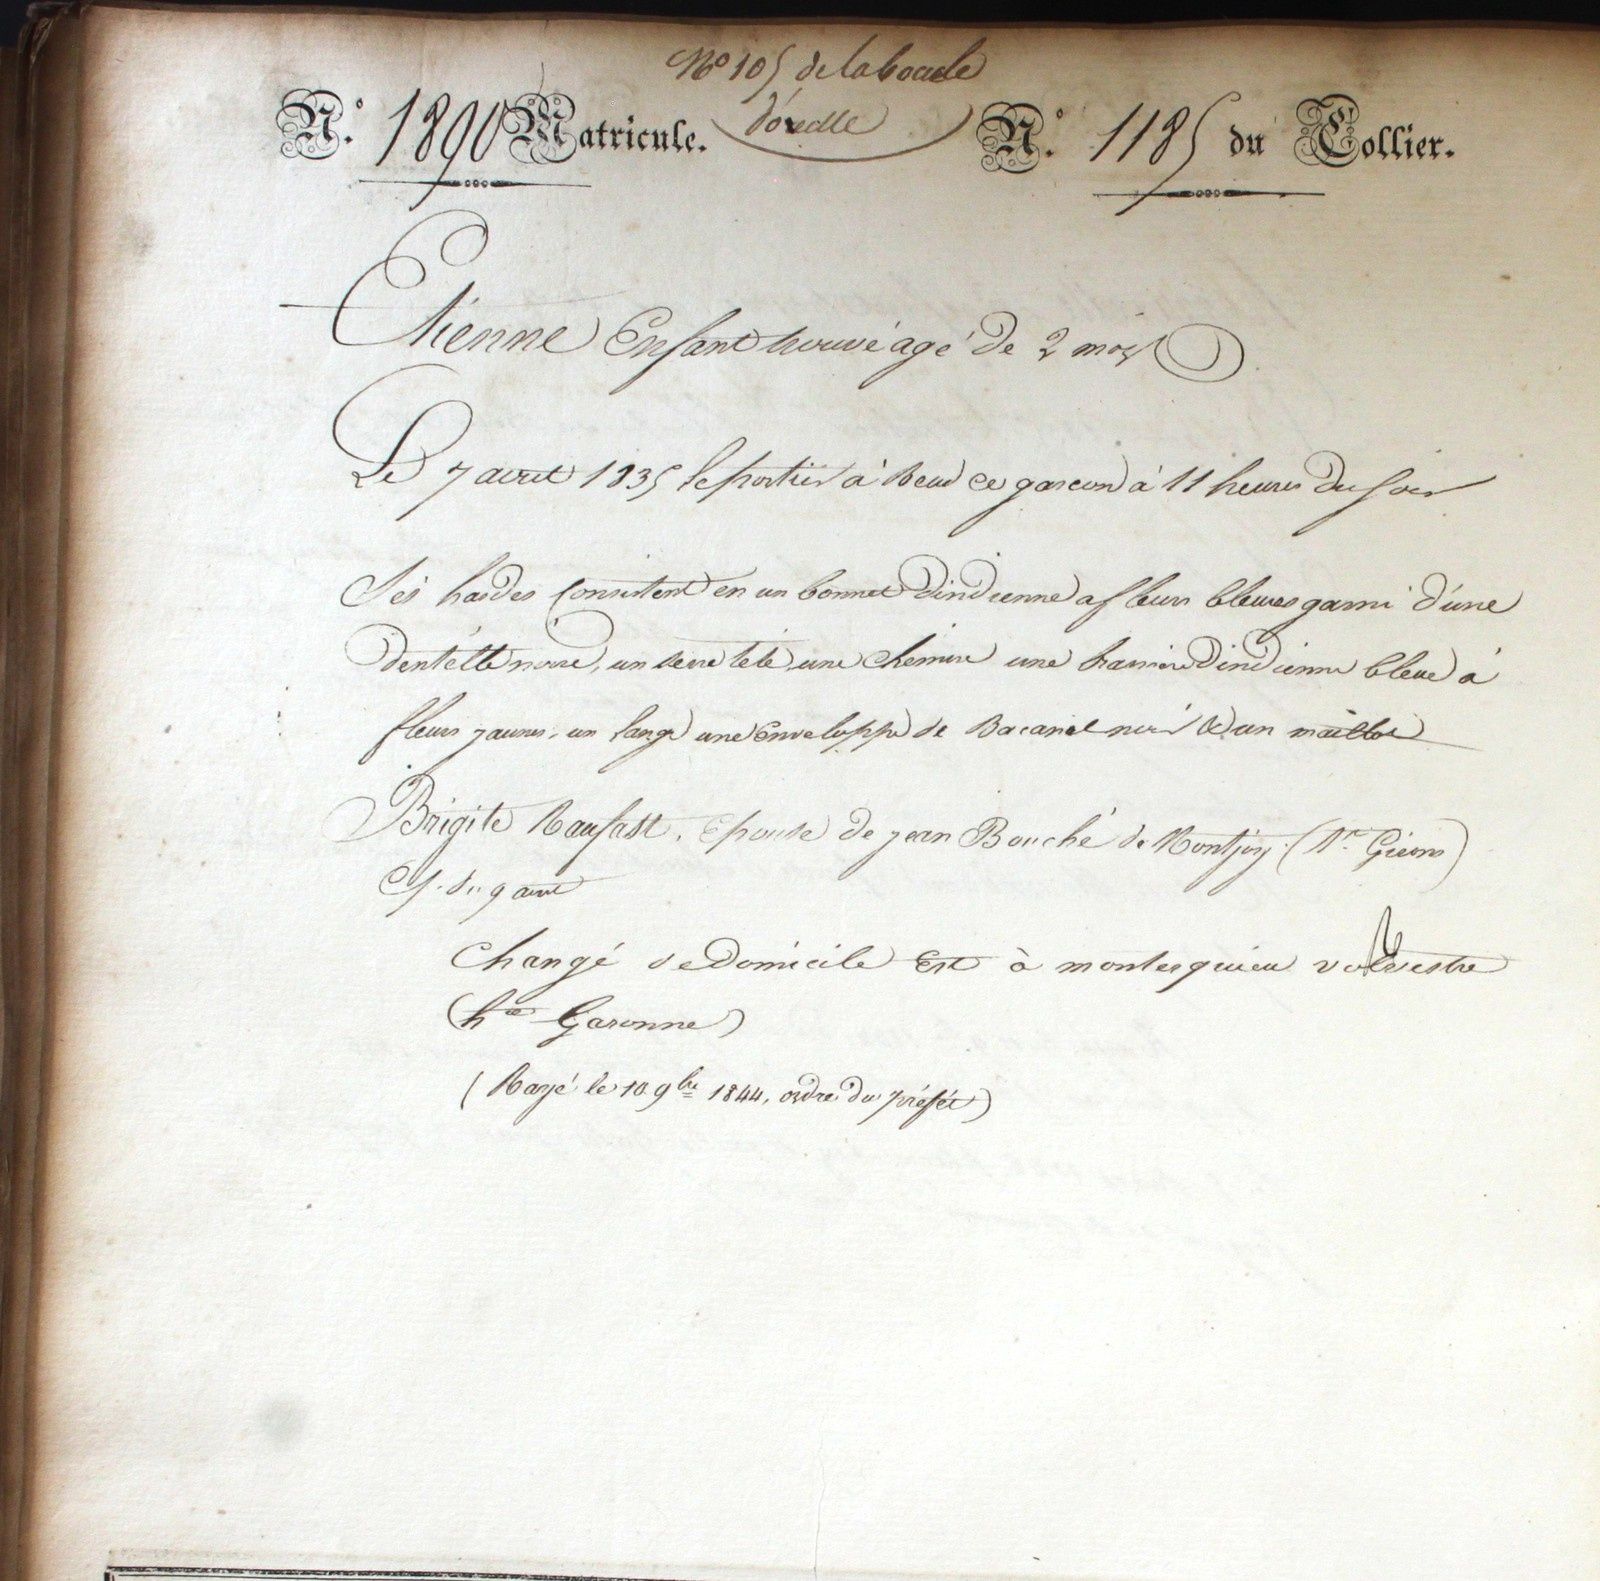 N° 105 de la boucle
d'óreille
N.° 1890 Matricule. N.° 1185 du Collier.
Etienne Enfant trouvé agé de 2 mois
Le 7 avril 1835 le portier à Recu ce garcon à 11 heures du soir
Ses hardes Consistent en un bonnet d'indienne a fleurs bleues garni d'une
dentelle noire, un serre tete, une chemise une brassiere d'indienne bleue à
fleurs jaunes, un lange une Enveloppe de noir & un maillot
Brigite Raufast, Epouse de jean Bouché de Montjoy (St Girons)
du 9 avril
Changé de Domicile Est à montesquieu volvestre
(hte Garonne)
(Rayé le 10 9bre 1844, ordre du préfét)